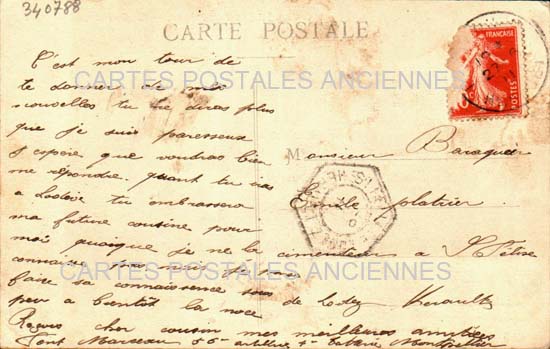 340788
CARTE POSTALE
FRANÇAISE
POSTES
CARTES POSTALES ANCIENNES
C'est mon tour de
te donner de mes
nouvelles tu ne diras plus
que je suis paresseux
J espère que voudras bien
me répondre. quant tu iras
a Lodève tu embrassera
ma future cousine pour
moi quoique je ne la
connaisse pas mais je
faire sa connaissance sous
peu a bientôt la noce
cher cousin mes meilleures amitiés
Pont Marceau 56e artillerie 1e batterie Montpellier
Monsieur Baraquier
Emile platrier
a St Pétire
de Lodez Herault
CARTES POSTALES ANCIENNES